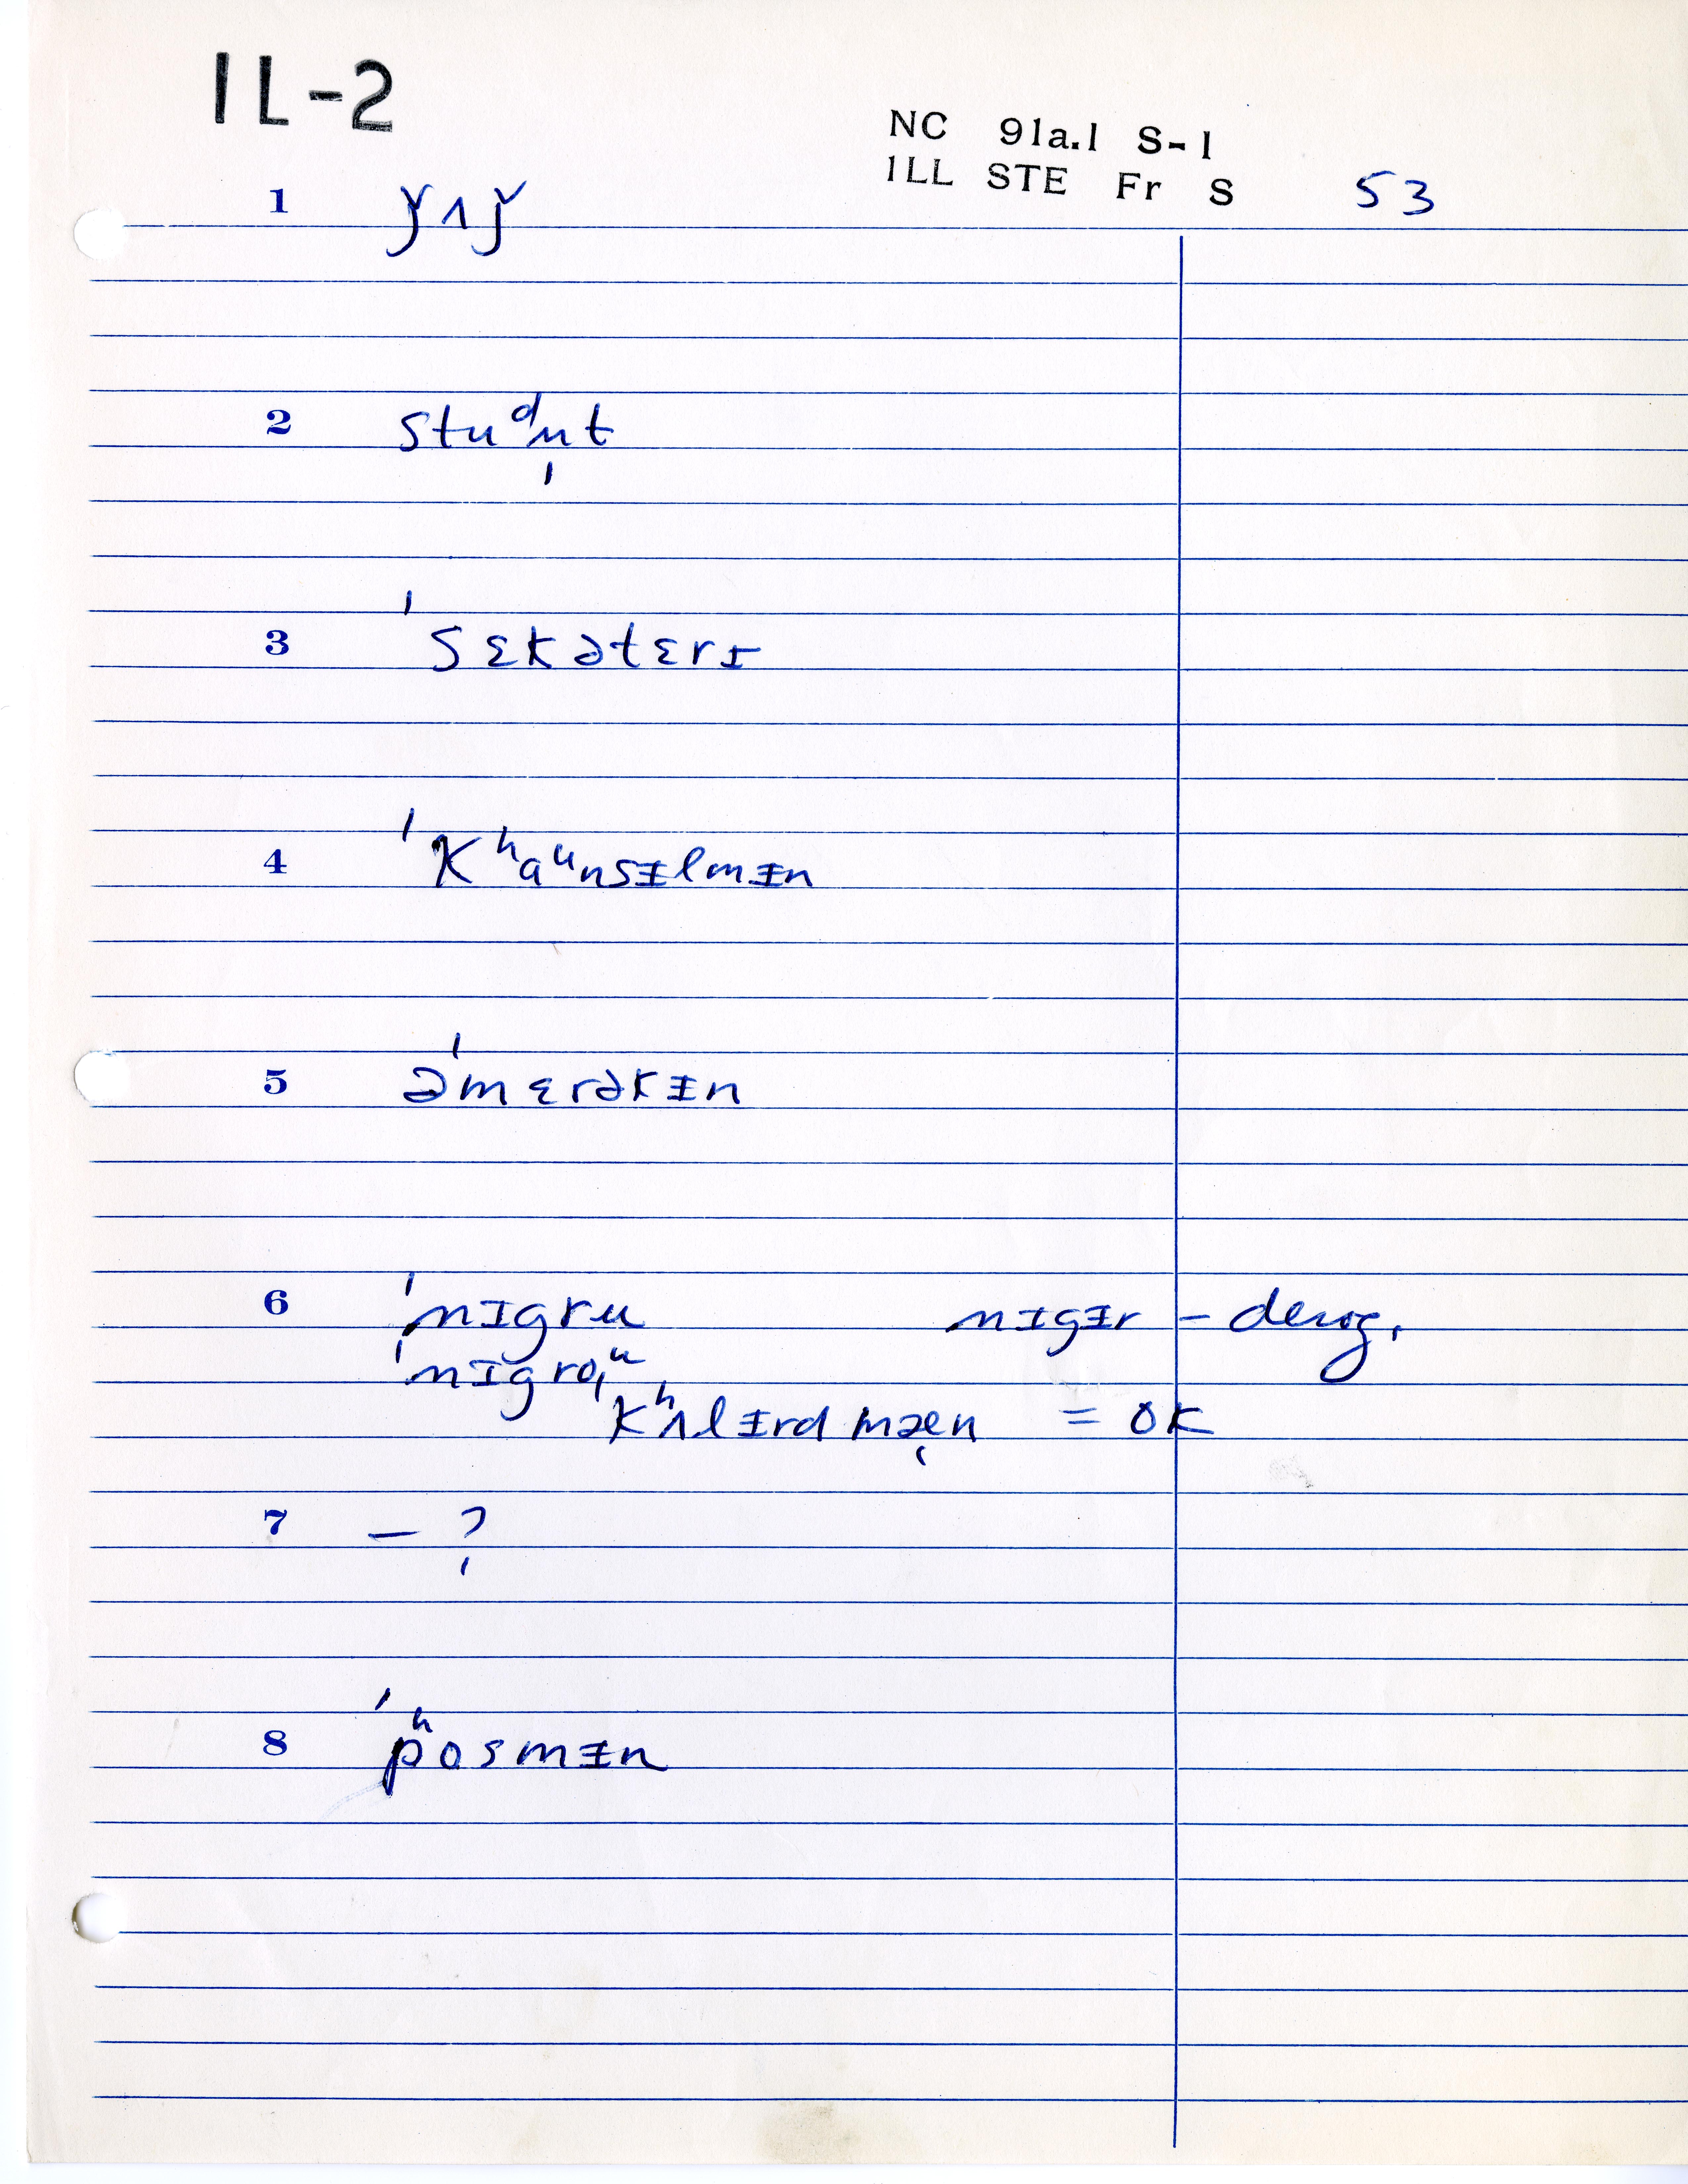 IL-2
NC 91a.1 S-1
ILL STE Fr S 53
1 ǰʌǰ
2 studn̩t
3 ˈsɛkətɛrɪ
4 ˈkʰaᵘnsᵻlmᵻn
5 əˈmɛrəkᵻn
6 ˈnɪgru nɪgᵻr – derog.
ˈnɪgroᵘ
kʰʌlᵻrd mæn = OK
7 – ?
8 ˈpʰosmᵻn